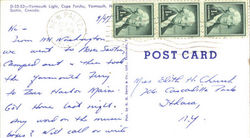 D-22-52—Yarmouth Light, Cape Forchu, Yarmouth, N
Scotia, Canada
9/4/
Hi —
from Mt Washington
we went to Nova Scotia,
Camped out & then took
the Yarmouth Ferry
to Bar Harbor Maine.
Got Home last night.
Any word on the music
boxes? Will call or write
POST CARD
Mrs Edith H. Church
206 Cascadilla Park
Ithaca,
N.Y.